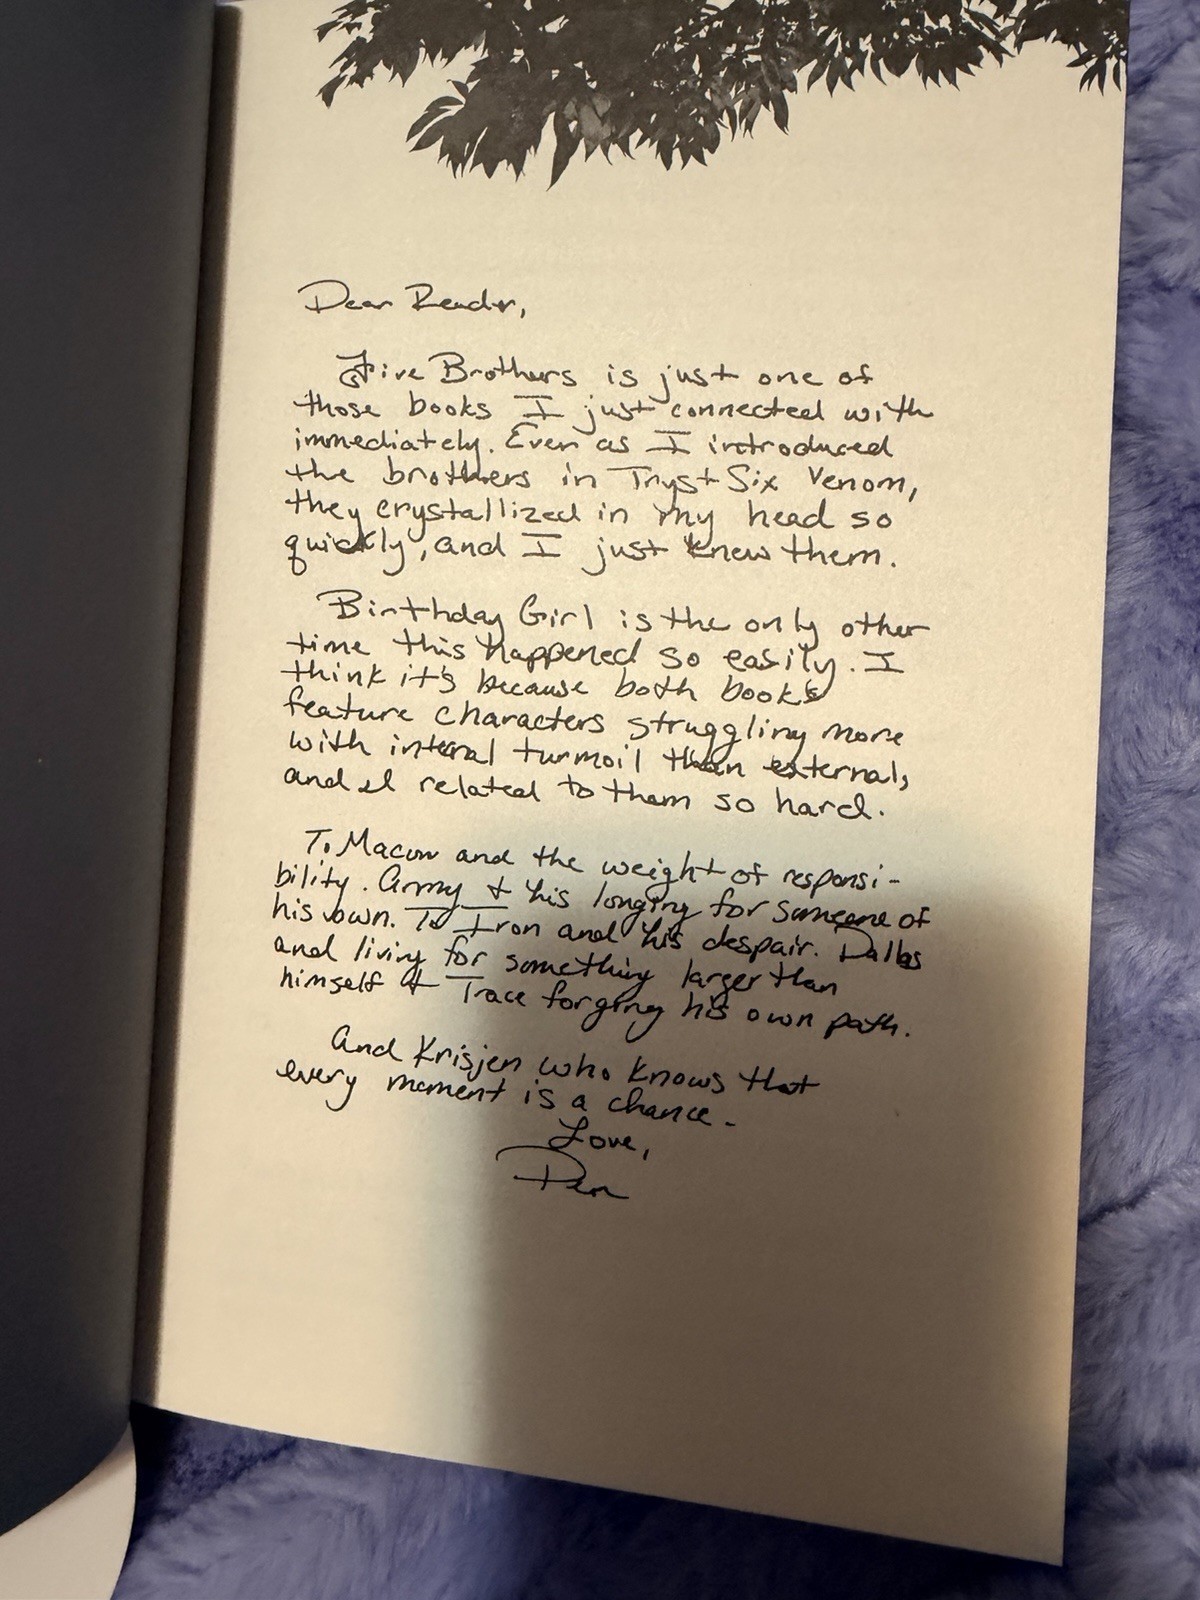 Dear Reader,
Five Brothers is just one of
those books I just connected with
immediately. Even as I introduced
the brothers in Tryst Six Venom,
they crystallized in my head so
quickly, and I just knew them.
Birthday Girl is the only other
time this happened so easily. I
think it's because both books
feature characters struggling more
with internal turmoil than external,
and I related to them so hard.
To Macon and the weight of responsi-
bility. Army & his longing for someone of
his own. To Iron and his despair. Dallas
and living for something larger than
himself & Trace forging his own path.
And Krisjen who knows that
every moment is a chance.
Love,
Pen